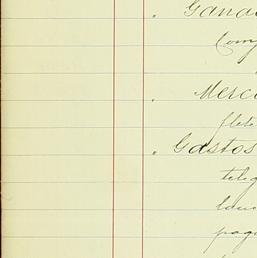 Gana
Com
Merca
flete
Gastos
teleg
pag